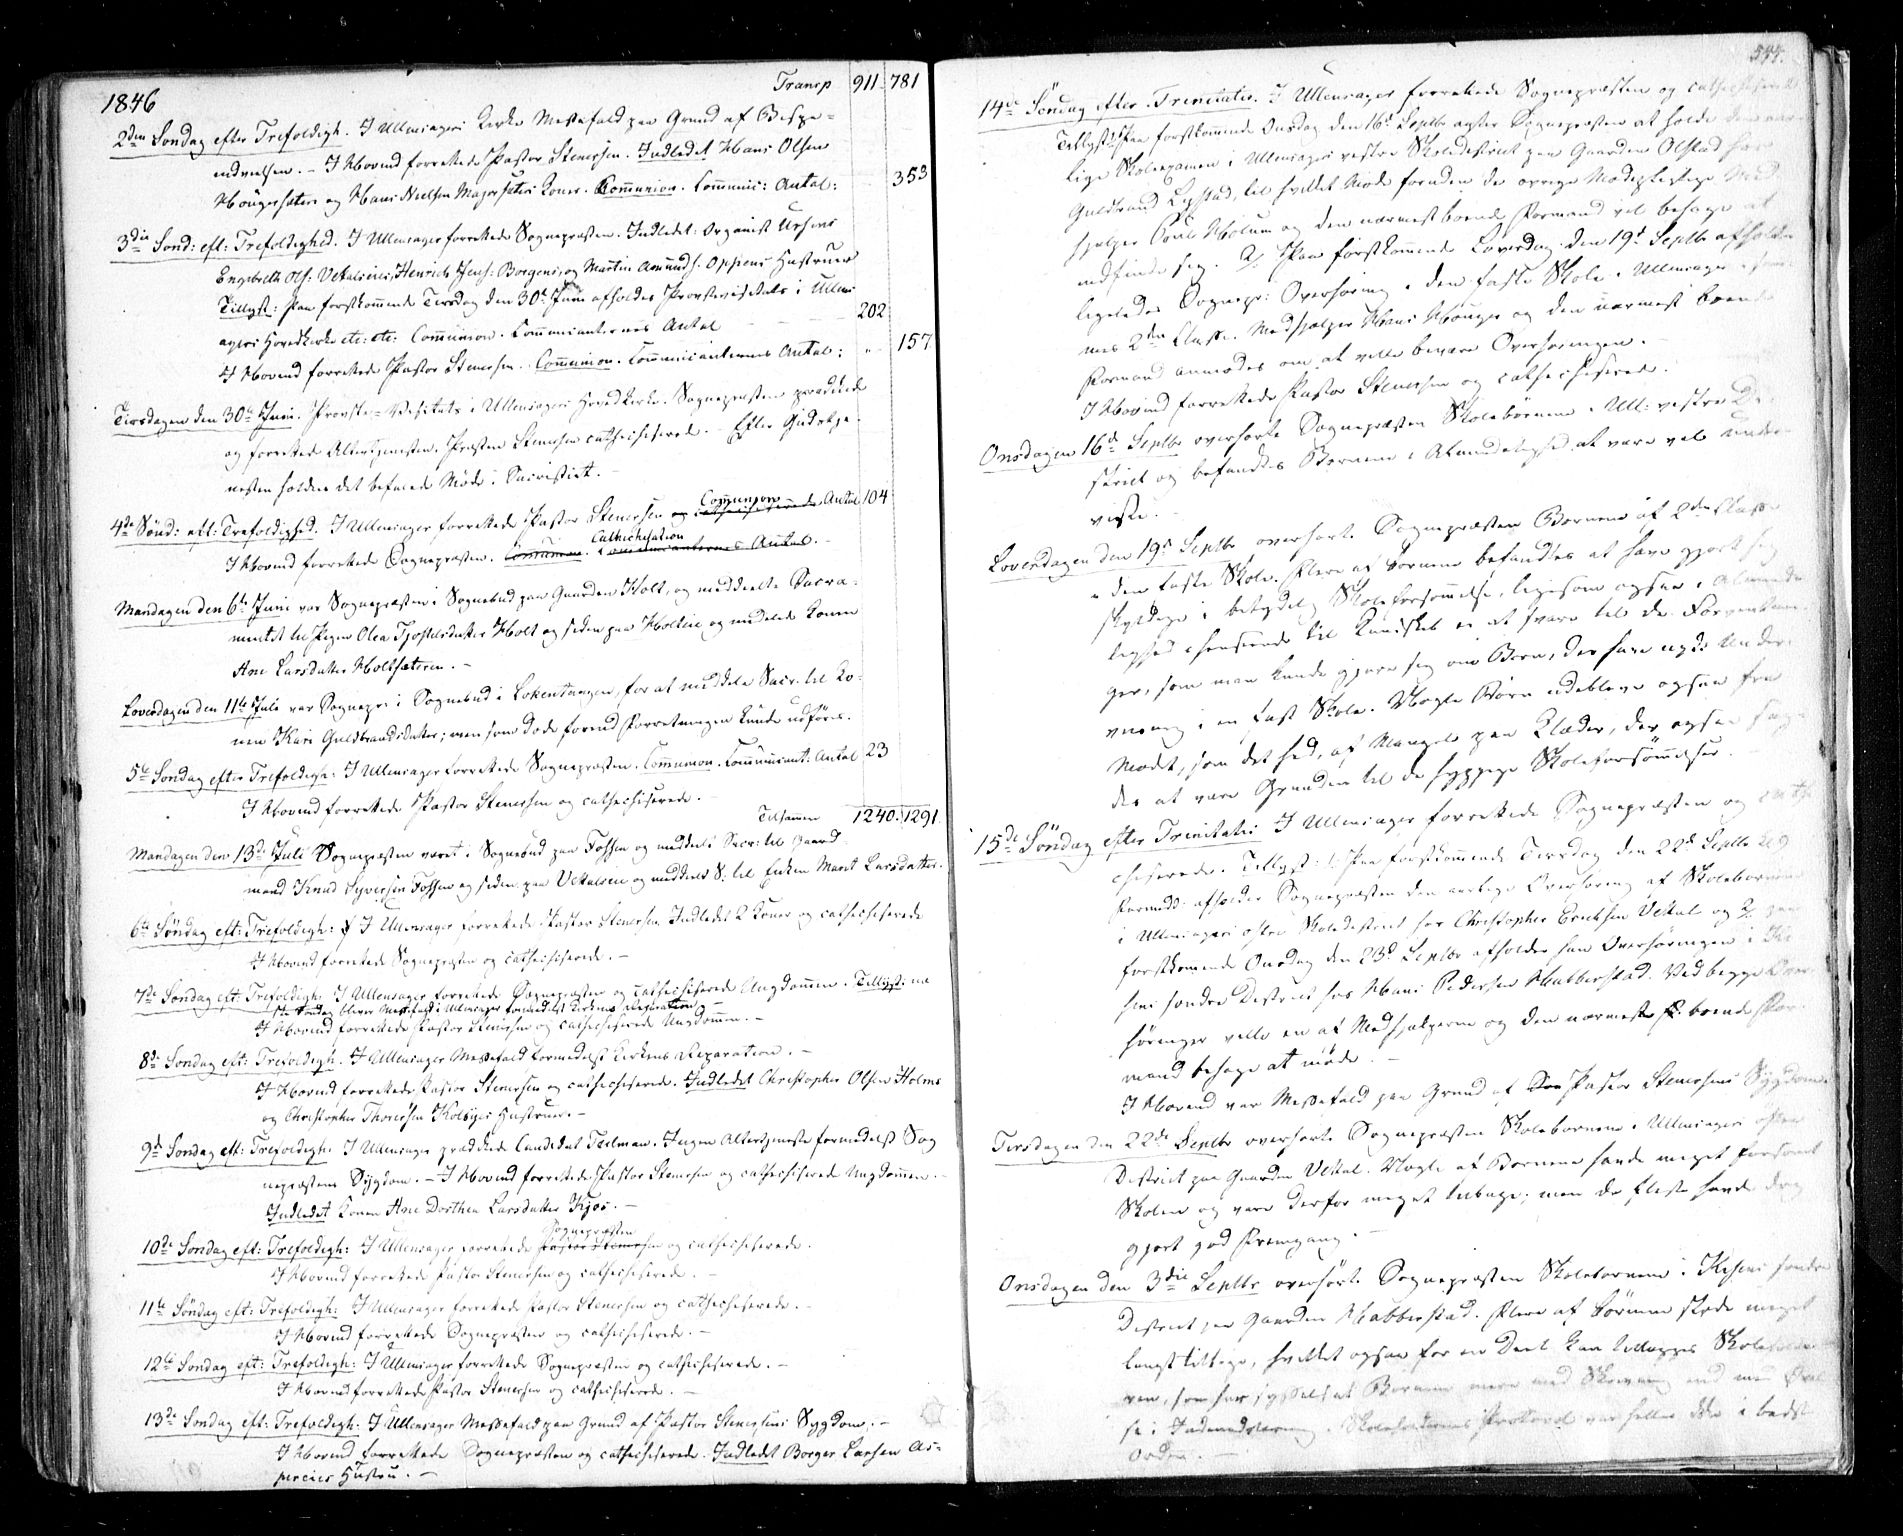 1846
Transp 911 781
2den Søndag efter Trefoldigh. I Ullensagers Kirke Messefald paa Grund af Bispe-
indvielsen. - I Hovind forrettede Pastor Stenersen. Indledet Hans Olsen
Hougersæter og Hans Nielsen Majorsæter Koner. Communion. Communic: Antal: 353
3die Sønd: eft: Trefoldighed. I Ullensager forrettede Sognepræsten. Indledet: Organist
Engebreth Ols: Henrich Jens: Borgens, og Martin Amunds: Hustruer
Tillyst: Paa førstkommende Tirsdag den 30te Juni afholdes Provstevisitats i Ullens-
agers Hovedkirke etc: etc: Communion. Communicanternes Antal 202
I Hovind forrettede Pastor Stenersen. Communion. Communicanternes Antal: " 157
Tirsdagen den 30te Juni. Provste-Visitats i Ullensagers Hovedkirke. Sognepræsten prædikede
og forrettede Altertjenesten. Præsten Stenersen cathechiserede. - Efter Gudstje-
nesten holdtes det befalede Møde i Sacristiet. -
4de Sønd: eft: Trefoldighed. I Ullensager forrettede Pastor Stenersen og cathechiserede Communion Antal 104
I Hovind forrettede Sognepræsten. Communion. Communicanternes Antal. Cathechisation -
Mandagen den 6te Juni var Sognepræsten i Sognebud paa Gaarden Holt, og meddeelte Sacra-
mentet til Pigen Olea Tjostelsdatter Holt og siden paa Holteie og meddelte Konen
Ane Larsdatter Holtsæteren. -
Løverdagen den 11te Juli var Sognepr: i Sognebud i Løkentangen, for at meddele Sacr. til Ko-
nen Kari Guldbrandsdatter; men som døde forend Forretningen kunde udføres.
5te Søndag efter Trefoldigh: I Ullensager forrettede Sognepræsten. Communion. Communicant: Antal 23
I Hovind forrettede Pastor Stenersen og cathechiserede. -
Tilsammen 1240. 1291.
Mandagen den 13de Juli Sognepræsten været i Sognebud paa Fossen og meddeelt Sacr: til Gaard-
mand Knud Syversen Fossen og siden paa Vekaleie og meddeelt S: til Enken Maret Larsdatter.
6te Søndag eft: Trefoldigh: I Ullensager forrettede Pastor Stenersen Indledet 2 Koner og cathechiserede
I Hovind forrettede Sognepræsten og cathechiserede. -
7de Søndag eft: Trefoldigh: I Ullensager forrettede Sognepræsten og cathechiserede Ungdommen. Tillyst: næ-
ste Søndag bliver Messefald i Ullensager formedelst Kirkens Reparation -
I Hovind forrettede Pastor Stenersen og cathechiserede Ungdommen. -
8de Søndag eft: Trefoldigh. I Ullensager Messefald formedelst Kirkens Reparation. -
I Hovind forrettede Pastor Stenersen og cathechiserede. Indledet Christopher Olsen Holms
og Christopher Thoresen Kolbyes Hustruer. -
9de Søndag eft: Trefoldigh: I Ullensager prædikede Candidat Teilman. Ingen Altertjeneste formedelst Sog-
nepræstens Sygdom. - I Hovind forrettede Pastor Stenersen og cathechiserede Ungdommen. -
Indledet Konen Ane Dorthea Larsdatter Kjos. -
10de Søndag eft: Trefoldigh: I Ullensager forrettede Pastor Stenersen Sognepræsten og cathechiserede.
I Hovind forrettede Pastor Stenersen og cathechiserede. -
11te Søndag eft: Trefoldigh: I Ullensager forrettede Pastor Stenersen og cathechiserede. -
I Hovind forrettede Sognepræsten og cathechiserede. -
12te Søndag eft: Trefoldigh: I Ullensager forrettede Sognepræsten og cathechiserede. -
I Hovind forrettede Pastor Stenersen og cathechiserede. -
13de Søndag eft: Trefoldigh: I Ullensager Messefald paa Grund af Pastor Stenersens Sygdom. -
I Hovind forrettede Sognepræsten og cathechiserede. Indledet Borger Larsen As-
Hustru. -
544.
14de Søndag efter Trinitatis. I Ullensager forrettede Sognepræsten og cathechiserede
Tillyst: Paa førstkommende Onsdag den 16de Septbr agter Sognepræsten at holde den aar-
lige Skoleexamen i Ullensagers vestre Skoledistrict paa Gaarden Olstad hos
Guldbrand Olstad, til hvilket Møde foruden de øvrige Mødepligtige Med-
hjelper Poul Holum og den nærmest boende Formand vil behage at
indfinde sig. 2, Paa førstkommende Løverdag den 19de Septbr afholder
ligeledes Sognepr: Overhøring i den faste Skole i Ullensager
2den Classe. Medhjelper Hans Houger og den nærmest boende
Formand anmodes om at ville bivære Overhøringen. -
I Hovind forrettede Pastor Stenersen og cathechiserede.
Onsdagen 16de Septbr overhørte Sognepræsten Skolebørnene i Ull: vestre Di-
strict og befandtes Børnene i Almindelighed at være vel under-
viste. -
Løverdagen den 19de Septbr overhørte Sognepræsten Børnene af 2den Classe
i den faste Skole. Flere af Børnene befandtes at have gjort sig
skyldige i betydelig Skoleforsømmelse, ligesom ogsaa i Alminde-
lighed i henseende til Kundskab ei at svare til de Forventnin-
ger, som man kunde gjøre sig om Børn, der have nydt Under-
viisning i en fast Skole. Nogle Børn udebleve ogsaa fra
Mødet, som det hed, af Mangel paa Klæder, der ogsaa sag-
des at være Grunden til de hyppige Skoleforsømmelser.
15de Søndag efter Trinitatis I Ullensager forrettede Sognepræsten og cathe-
chiserede. Tillyst: 1. Paa førstkommende Tirsdag den 22de Septbr
Formidd: afholder Sognepræsten den aarlige Overhøring af Skolebørnene
i Ullensagers østre Skoledistrict hos Christopher Eriksen Vekal og 2, paa
førstkommende Onsdag den 23de Septbr afholder han Overhøringen i Ki-
sens søndre District hos Hans Pedersen Habberstad. Ved begge Over-
høringer ville en af Medhjelperne og den nærmest boende For-
mand behage at møde. -
I Hovind var Messefald paa Grund af Pastor Stenersens Sygdom.
Tirsdagen den 22de Septbr overhørte Sognepræsten Skolebørnene i Ullensagers østre
District paa Gaarden Vekal. Nogle af Børnene havde meget forsømt
Skolen og vare derfor meget tilbage; men de fleste havde dog
gjort god Fremgang. -
Onsdagen den 3die Septbr overhørte Sognepræsten Skolebørnene i Kisens søndre
District paa Gaarden Habberstad. Flere af Børnene stode meget
langt tilbage, hvilket ogsaa for en Deel kan tillægges Skolehol-
deren, som har sysselsat Børnene mere med Skrivning end med Øvel-
se i Indenadslæsning. Skoleholderens Protocol var heller ikke i bedste
Orden. -